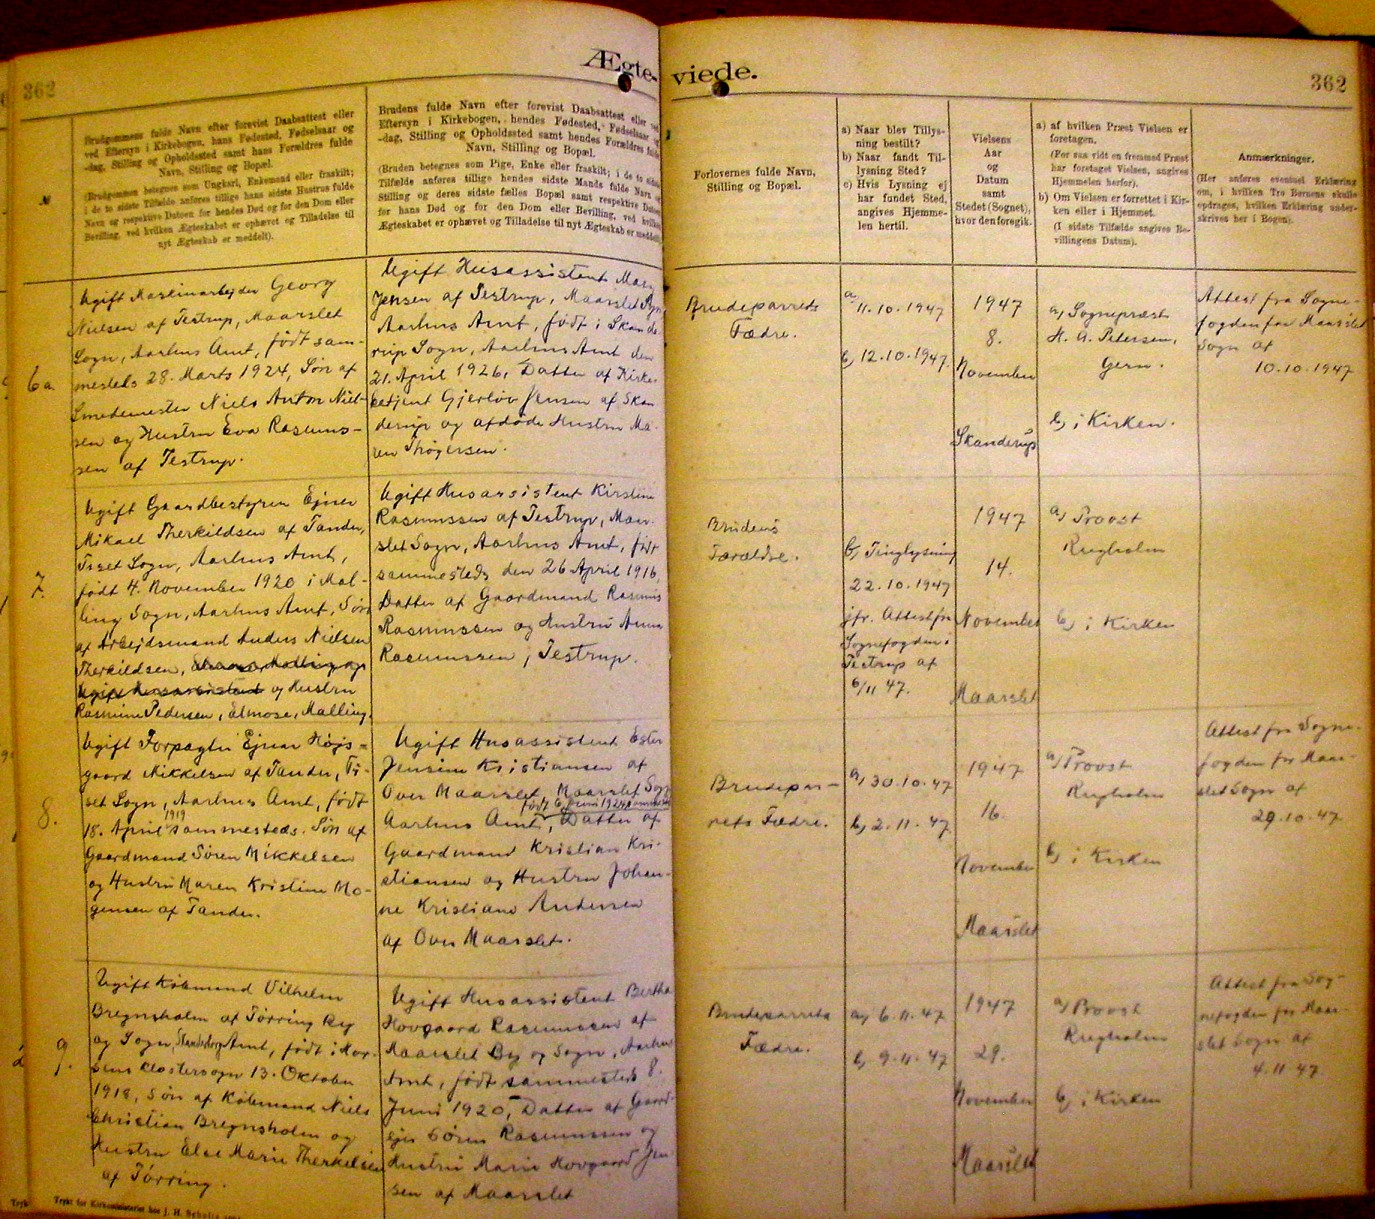 362
Ægte-
viede.
362
Brudgommens fulde Navn efter forevist Daabsattest eller
ved Eftersyn i Kirkebogen, hans Fødested, Fødselsaar og
-dag, Stilling og Opholdssted samt hans Forældres fulde
Navn, Stilling og Bopæl.
(Brudgommen betegnes som Ungkarl, Enkemand eller fraskilt;
i de to sidste Tilfælde anføres tillige hans sidste Hustrus fulde
Navn og respektive Datoen for hendes Død og for den Dom eller
Bevilling, ved hvilken Ægteskabet er ophævet og Tilladelse til
nyt Ægteskab er meddelt).
Brudens fulde Navn efter forevist Daabsattest eller ved
Eftersyn i Kirkebogen, hendes Fødested, Fødselsaar og
-dag, Stilling og Opholdssted samt hendes Forældres fulde
Navn, Stilling og Bopæl.
(Bruden betegnes som Pige, Enke eller fraskilt; i de to sidste
Tilfælde anføres tillige hendes sidste Mands fulde Navn og
Stilling og deres sidste fælles Bopæl samt respektive Datoen
for hans Død og for den Dom eller Bevilling, ved hvilken
Ægteskabet er ophævet og Tilladelse til nyt Ægteskab er meddelt).
Forlovernes fulde Navn,
Stilling og Bopæl.
a) Naar blev Tillys-
ning bestilt?
b) Naar fandt Til-
lysning Sted?
c) Hvis Lysning ej
har fundet Sted,
angives Hjemme-
len hertil.
Vielsens
Aar
og
Datum
samt
Stedet (Sognet),
hvor den foregik.
a) af hvilken Præst Vielsen er
foretagen.
(For saa vidt en fremmed Præst
har foretaget Vielsen, angives
Hjemmelen herfor).
b) Om Vielsen er forrettet i Kir-
ken eller i Hjemmet.
(I sidste Tilfælde angives Be-
villingens Datum).
Anmærkninger.
(Her anføres eventuel Erklæring
om, i hvilken Tro Børnene skulle
opdrages, hvilken Erklæring under-
skrives her i Bogen).
6a.
Ugift Maskinarbejder Georg
Nielsen af Testrup, Maarslet
Sogn, Aarhus Amt, født sam-
mesteds 28. Marts 1924, Søn af
Smedemester Niels Anton Niel-
sen og Hustru Eva Rasmus-
sen af Testrup.
Ugift Husassistent Mary
Jensen af Testrup, Maarslet Sogn
Aarhus Amt, født i Skande-
rup Sogn, Aarhus Amt den
21. April 1926, Datter af Kirke-
betjent Gjerlöv Jensen af Skan
derup og afdøde Hustru Ma-
ren Thøgersen.
Brudeparrets
Fædre.
a, 11.10.1947
b, 12.10.1947.
1947
8.
November
Skanderup
a, Sognepræst
H. A. Petersen,
Gern.
b, i Kirken.
Attest fra Sogne-
fogden for Maarslet
Sogn af
10.10.1947
7.
Ugift Gaardbestyrer Ejner
Mikael Therkildsen af Tander,
Tiset Sogn, Aarhus Amt,
født 4. November 1920 i Mal-
ling Sogn, Aarhus Amt, Søn
af Arbejdsmand Anders Nielsen
Therkildsen,
Ugift Husassistent og Hustru
Rasmine Pedersen, Elmose, Malling.
Ugift Husassistent Kirstine
Rasmussen af Testrup, Maar-
slet Sogn, Aarhus Amt, født
sammesteds den 26 April 1916,
Datter af Gaardmand Rasmus
Rasmussen og Hustru Anna
Rasmussen, Testrup.
Brudens
Forældre.
b, Tinglysning
22.10.1947
jfr. Attest fra
Sognefogden i
Testrup af
6/11 47.
1947
14.
November
Maarslet
a) Provst
Rugholm
b, i Kirken
8.
Ugift Forpagter Ejnar Højs=
gaard Mikkelsen af Tander, Ti-
set Sogn, Aarhus Amt, født
18. April 1919 sammesteds. Søn af
Gaardmand Søren Mikkelsen
og Hustru Maren Kristine Mo-
gensen af Tander.
Ugift Husassistent Ester
Jensine Kristiansen af
Over Maarslet, Maarslet Sogn
født 6 Juni 1924 sammesteds
Aarhus Amt, Datter af
Gaardmand Kristian Kri-
stiansen og Hustru Johan-
ne Kristiane Andersen
af Over Maarslet.
Brudepar-
rets Fædre.
a, 30.10.47
b, 2.11.47
1947
16.
November
Maarslet
a, Provst
Rugholm
b, i Kirken
Attest fra Sogne-
fogden for Maar-
slet Sogn af
29.10.47
9.
Ugift Købmand Vilhelm
Bregnsholm af Tørring By
og Sogn, Skanderborg Amt, født i Hor-
sens Klostersogn 13. Oktober
1918, Søn af Købmand Niels
Christian Bregnsholm og
Hustru Else Marie Therkelsen
af Tørring.
Ugift Husassistent Bertha
Hovgaard Rasmussen af
Maarslet By og Sogn, Aarhus
Amt, født sammesteds 8.
Juni 1920, Datter af Gaard-
ejer Søren Rasmussen og
Hustru Marie Hovgaard Jen
sen af Maarslet
Brudeparrets
Fædre.
a, 6.11.47
b, 9.11.47
1947
29.
November
Maarslet
a) Provst
Rugholm
b, i Kirken
Attest fra Sog-
nefogden for Maar-
slet Sogn af
4.11.47
Trykt for Kirkeministeriet hos J. H. Schultz